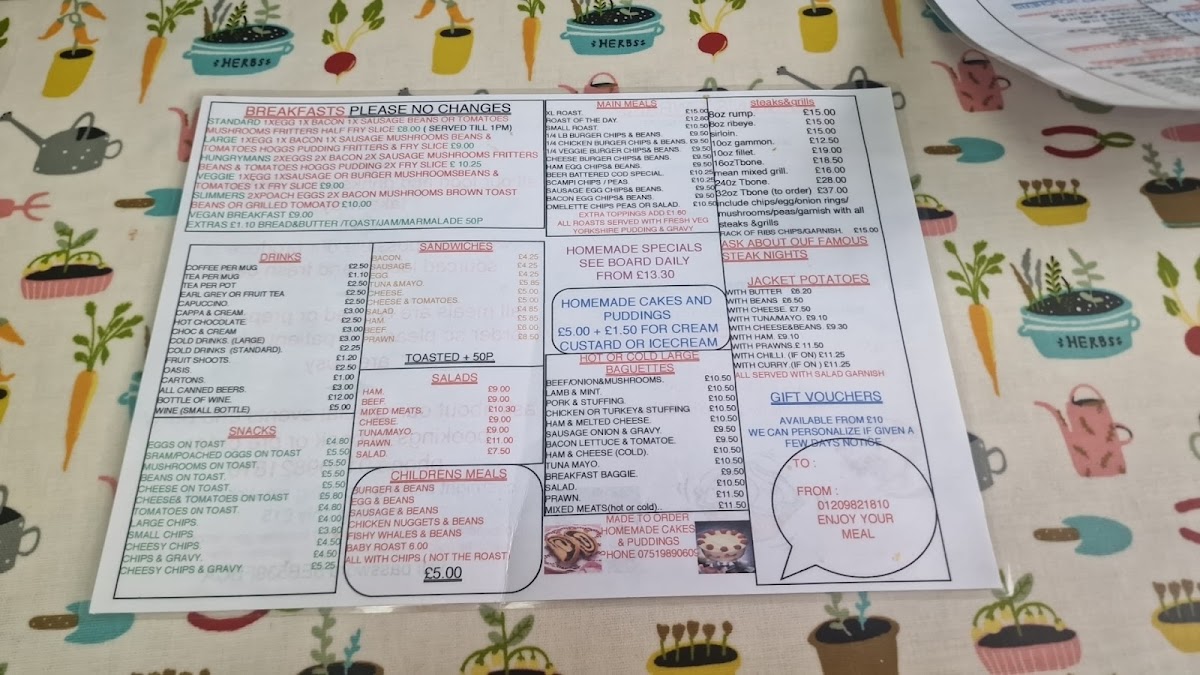 BREAKFASTS PLEASE NO CHANGES
STANDARD 1XEGG 1X BACON 1X SAUSAGE BEANS OR TOMATOES
MUSHROOMS FRITTERS HALF FRY SLICE £8.00 ( SERVED TILL 1PM)
LARGE 1XEGG 1X BACON 1X SAUSAGE MUSHROOMS BEANS &
TOMATOES HOGGS PUDDING FRITTERS & FRY SLICE £9.00
HUNGRYMANS 2XEGGS 2X BACON 2X SAUSAGE MUSHROOMS FRITTERS
BEANS & TOMATOES HOGGS PUDDING 2X FRY SLICE £ 10.25
VEGGIE 1XEGG 1XSAUSAGE OR BURGER MUSHROOMSBEANS &
TOMATOES 1X FRY SLICE £9.00
SLIMMERS 2XPOACH EGGS 2X BACON MUSHROOMS BROWN TOAST
BEANS OR GRILLED TOMOATO £10.00
VEGAN BREAKFAST £9.00
EXTRAS £1.10 BREAD&BUTTER /TOAST/JAM/MARMALADE 50P
DRINKS
COFFEE PER MUG £2.50
TEA PER MUG £1.10
TEA PER POT £2.50
EARL GREY OR FRUIT TEA £2.50
CAPUCCINO. £2.50
CAPPA & CREAM. £3.00
HOT CHOCOLATE. £2.50
CHOC & CREAM £3.00
COLD DRINKS. (LARGE) £3.00
COLD DRINKS (STANDARD). £2.25
FRUIT SHOOTS. £1.20
OASIS. £2.50
CARTONS. £1.00
ALL CANNED BEERS. £3.00
BOTTLE OF WINE. £12.00
WINE (SMALL BOTTLE) £5.00
SNACKS
EGGS ON TOAST £4.80
SRAM/POACHED OGGS ON TOAST £5.50
MUSHROOMS ON TOAST. £5.50
BEANS ON TOAST. £5.50
CHEESE ON TOAST. £5.50
CHEESE& TOMATOES ON TOAST £5.80
TOMATOES 0N TOAST. £4.80
LARGE CHIPS. £4.00
SMALL CHIPS. £3.80
CHEESY CHIPS £4.50
CHIPS & GRAVY. £4.50
CHEESY CHIPS & GRAVY. £5.25
SANDWICHES
BACON. £4.25
SAUSAGE. £4.25
EGG. £4.25
TUNA &MAYO. £5.85
CHEESE. £5.00
CHEESE & TOMATOES. £5.00
SALAD. £4.85
HAM. £5.85
BEEF. £6.00
PRAWN. £8.50
TOASTED + 50P.
SALADS
HAM. £9.00
BEEF. £9.00
MIXED MEATS. £10.30
CHEESE. £9.00
TUNA/MAYO. £9.00
PRAWN. £11.00
SALAD. £7.50
CHILDRENS MEALS
BURGER & BEANS
EGG & BEANS
SAUSAGE & BEANS
CHICKEN NUGGETS & BEANS
FISHY WHALES & BEANS
BABY ROAST 6.00
ALL WITH CHIPS ( NOT THE ROAST)
£5.00
MAIN MEALS
XL ROAST. £15.00
ROAST OF THE DAY. £12.80
SMALL ROAST. £10.50
1/4 LB BURGER CHIPS & BEANS. £9.50
1/4 CHICKEN BURGER CHIPS & BEANS. £9.50
1/4 VEGGIE BURGER CHIPS & BEANS. £9.50
CHEESE BURGER CHIPS& BEANS. £9.50
HAM EGG CHIPS& BEANS. £9.50
BEER BATTERED COD SPECIAL. £10.25
SCAMPI CHIPS / PEAS £10.25
SAUSAGE EGG CHIPS& BEANS. £9.50
BACON EGG CHIPS& BEANS. £9.50
OMELETTE CHIPS PEAS OR SALAD. £10.50
EXTRA TOPPINGS ADD £1.60
ALL ROASTS SERVED WITH FRESH VEG
YORKSHIRE PUDDING & GRAVY
HOMEMADE SPECIALS
SEE BOARD DAILY
FROM £13.30
HOMEMADE CAKES AND
PUDDINGS
£5.00 + £1.50 FOR CREAM
CUSTARD OR ICECREAM
HOT OR COLD LARGE
BAGUETTES
BEEF/ONION&MUSHROOMS. £10.50
LAMB & MINT. £10.50
PORK & STUFFING. £10.50
CHICKEN OR TURKEY& STUFFING £10.50
HAM & MELTED CHEESE. £10.50
SAUSAGE ONION & GRAVY. £9.50
BACON LETTUCE & TOMATE. £9.50
HAM & CHEESE (COLD). £10.50
TUNA MAYO. £10.50
BREAKFAST BAGGIE. £9.50
SALAD. £10.50
PRAWN. £11.50
MIXED MEATS(hot or cold).. £11.50
MADE TO ORDER
HOMEMADE CAKES
& PUDDINGS
PHONE 07519890609
steaks&grills
8oz rump. £15.00
8oz ribeye. £15.00
sirloin. £15.00
10oz gammon. £12.50
10oz fillet. £19.00
16ozTbone. £18.50
mean mixed grill. £16.00
24oz Tbone. £28.00
32oz Tbone (to order) £37.00
include chips/egg/onion rings/
mushrooms/peas/garnish with all
steaks &grills
RACK OF RIBS CHIPS/GARNISH. £15.00
ASK ABOUT OUF FAMOUS
STEAK NIGHTS
JACKET POTATOES
WITH BUTTER £6.20
WITH BEANS £6.50
WITH CHEESE. £7.50
WITH TUNA/MAYO. £9.10
WITH CHEESE&BEANS. £9.30
WITH HAM. £9.10
WITH PRAWNS.£ 11.50
WITH CHILLI. (IF ON) £11.25
WITH CURRY.(IF ON ) £11.25
ALL SERVED WITH SALAD GARNISH
GIFT VOUCHERS
AVAILABLE FROM £10
WE CAN PERSONALIZE IF GIVEN A
FEW DAYS NOTICE
TO :
FROM :
01209821810
ENJOY YOUR
MEAL
HERBS
HERBS
HERBS